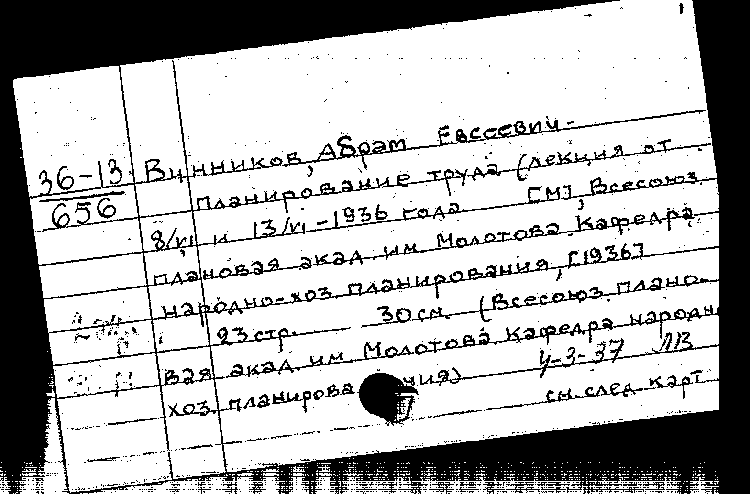 36-13
656
Винников, Абрам Евсеевич-
Планирование труда (лекция от
8/VI и 13/VI-1936 года [М], Всесоюз.
плановая акад. им. Молотова Кафедра
народно-хоз. планирования, [1936]
23 стр. 30 см. (Всесоюз. плано-
вая акад. им. Молотова. Кафедра народн
хоз. планирования)
у-3-37 ЛВ
см. след. карт